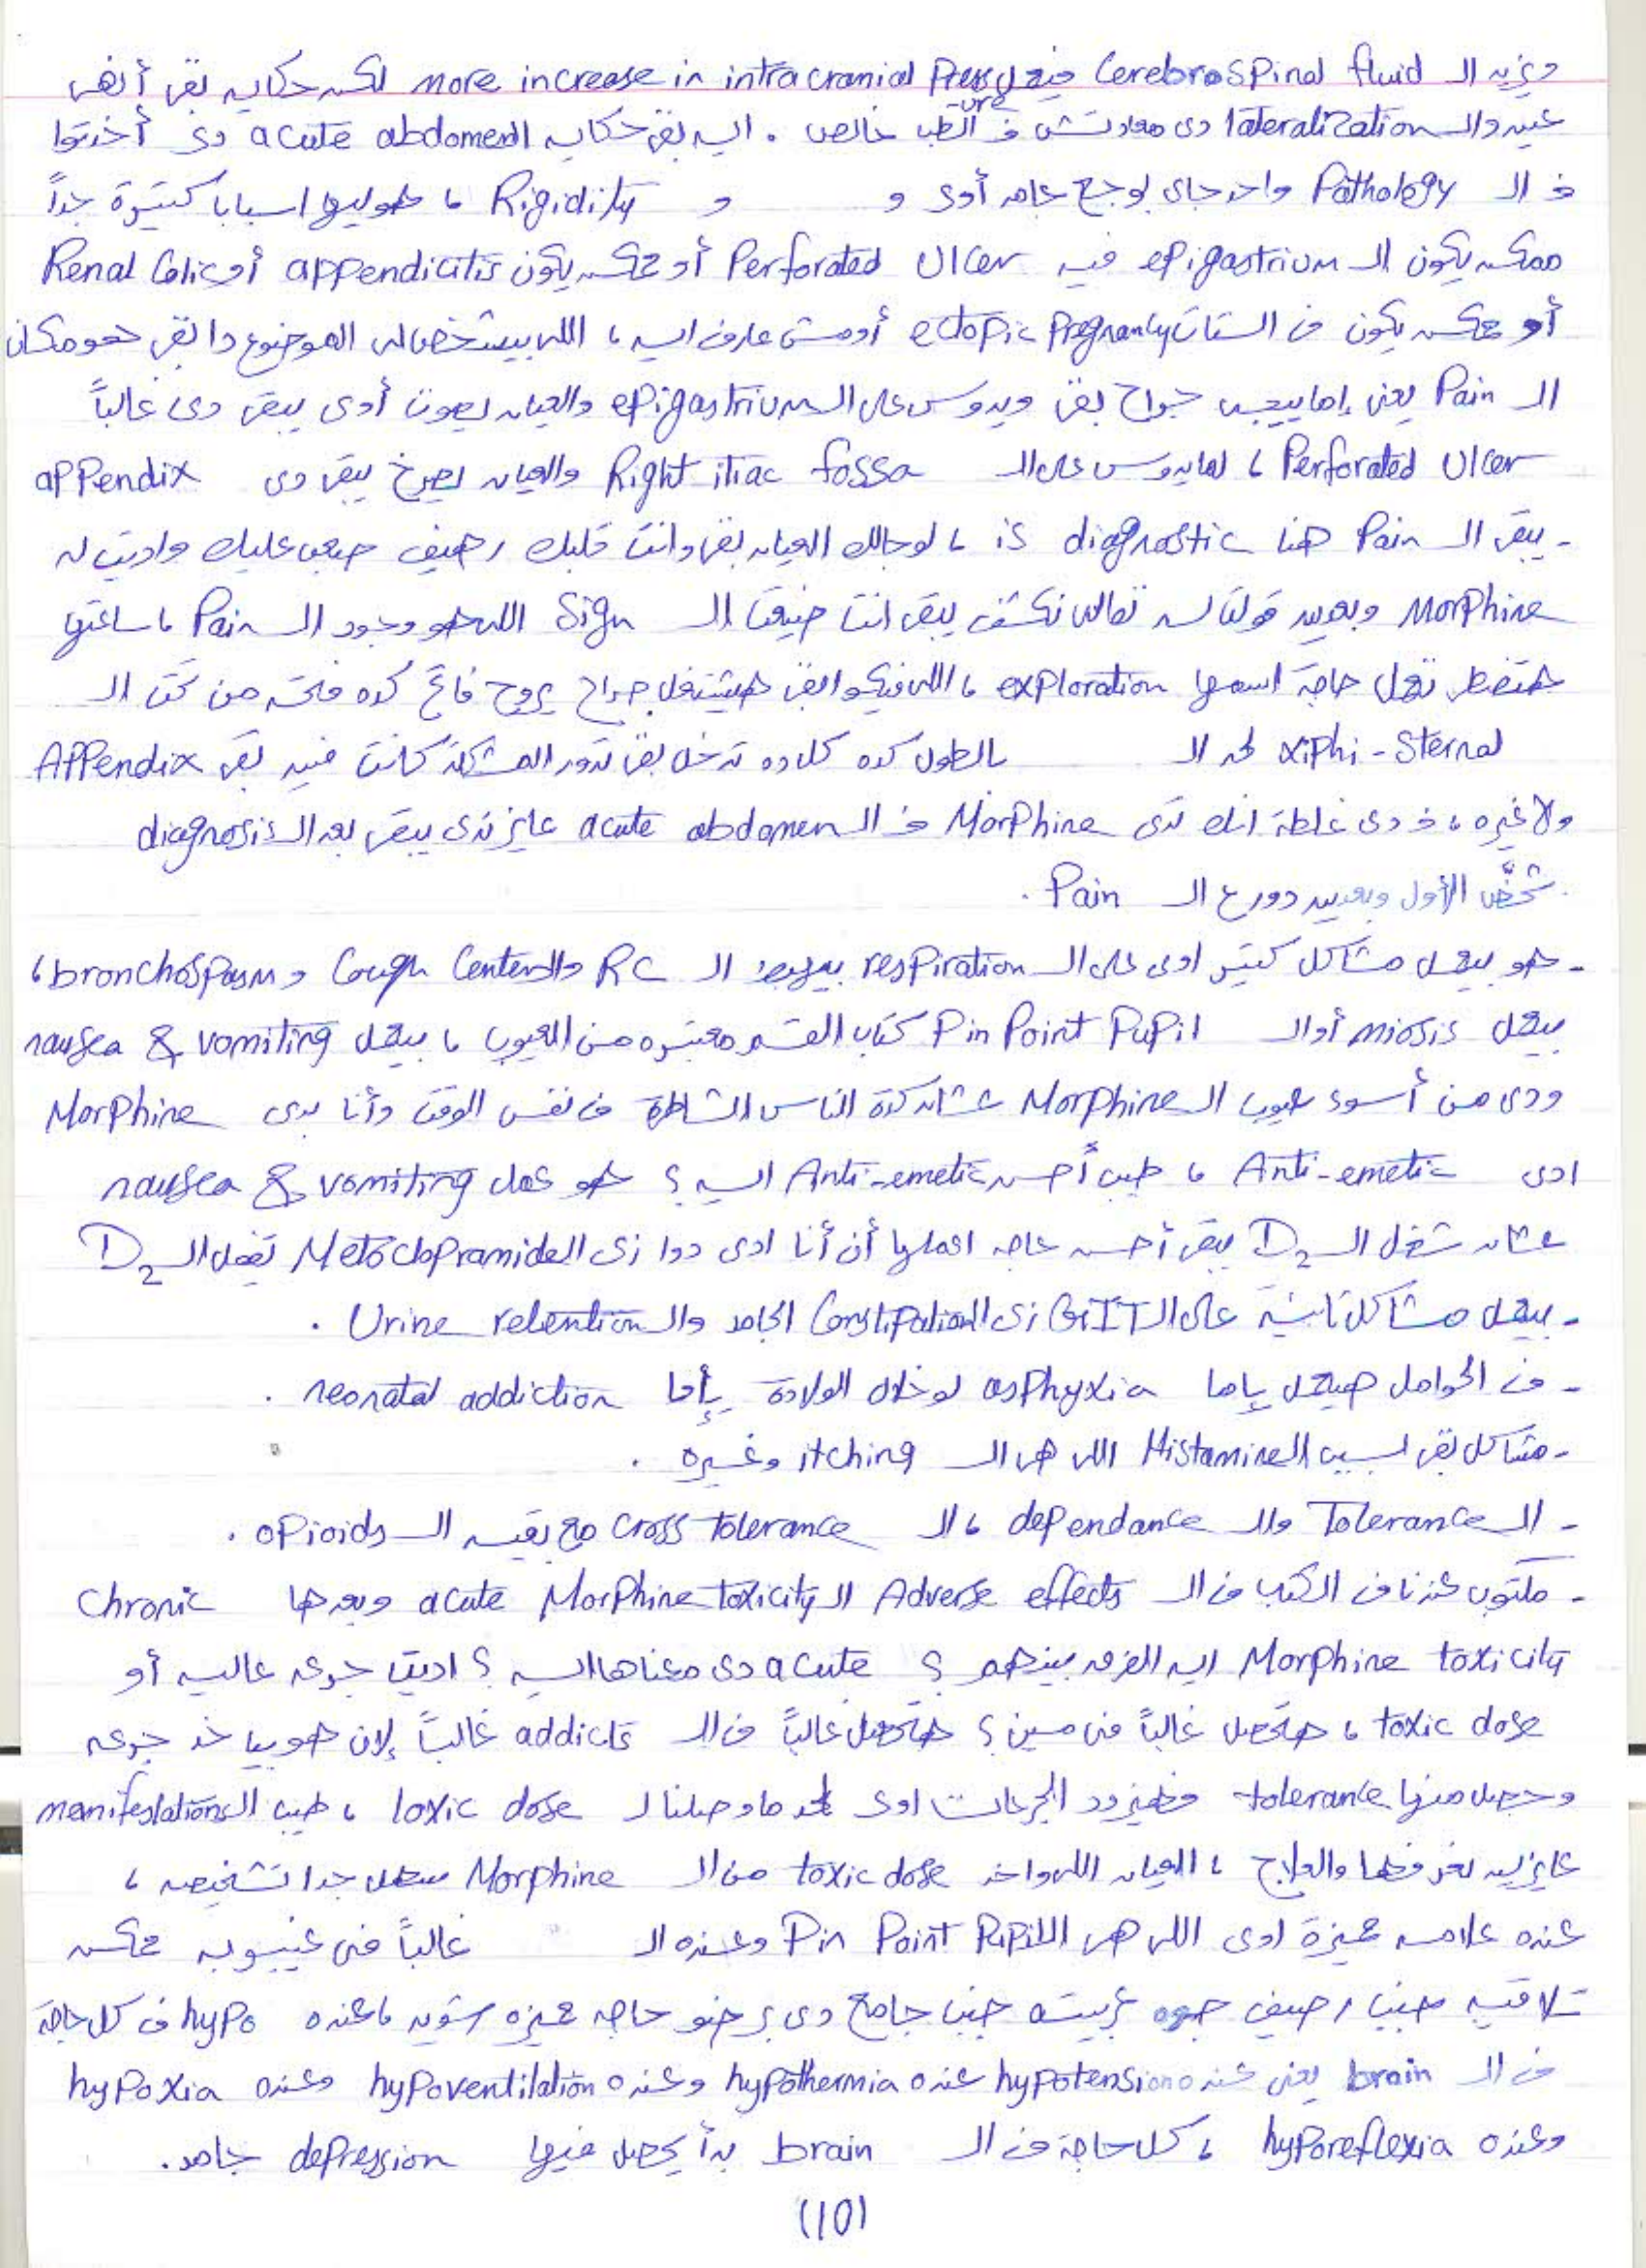 ويزيد الـ Cerebrospinal fluid فيعمل more increase in intracranial pressure لكن حكاية بقى أنهى
عين والـ lateralization دى معادتش فى الطب خالص . ايه بقى حكاية الـ acute abdomen دى أخدتوا
فى الـ Pathology واحد جاى بوجع جامد أوى و و Rigidity ، هو ليها اسبابا كتيرة جداً
ممكن يكون الـ epigastrium فيه Perforated Ulcer أو ممكن يكون appendicitis أو Renal Colic
أو ممكن يكون فى الستات ectopic Pregnancy أو مش عارف ايه ، اللى بيشخصلى الموضوع دا بقى هو مكان
الـ Pain يعنى إما ييجى جراح بقى ويدوس على الـ epigastrium والعيان يصوت أوى يبقى دى غالباً
Perforated Ulcer ، لما يدوس على الـ Right iliac fossa والعيان يصرخ يبقى دى appendix
- يبقى الـ Pain هنا is diagnostic ، لو جالك العيان بقى وانت قلبك رهيف صعب عليك واديت له
Morphine وبعدين قولت له تعالى نكشف يبقى انت ضيعت الـ Sign اللى هو وجود الـ Pain ، ساعتها
هتضطر تعمل حاجة اسمها exploration ، اللى فيكوا بقى هيشتغل جراح يروح فاتح كده فتحة من تحت الـ
xiphi-Sternal لحد الـ بالطول كده كل ده تدخل بقى تدور المشكلة كانت فين بقى Appendix
ولا غيره ، فـ دى غلطة انك تدى Morphine فى الـ acute abdomen عايز تدى يبقى بعد الـ diagnosis
شخَّص الأول وبعدين دور ع الـ Pain .
- هو بيعمل مشاكل كتير اوى على الـ respiration بيهبط الـ RC والـ Cough Center و bronchospasm ،
بيعمل miosis أو الـ Pin Point Pupil كتاب القسم معتبره من العيوب ، بيعمل nausea & vomiting
ودى من أسوء عيوب الـ Morphine عشان كدة الناس الشاطرة فى نفس الوقت وأنا بدى Morphine
ادى Anti-emetic ، طيب أحسن Anti-emetic ايه ؟ هو عمل nausea & vomiting
عشان شغل الـ D2 يبقى أحسن حاجه اعملها أن أنا ادى دوا زى الـ Metoclopramide تقفل الـ D2
- بيعمل مشاكل تانية على الـ GIT زى الـ Constipation الجامد والـ Urine retention .
- فى الحوامل هيعمل يإما asphyxia لو خلال الولادة يإما neonatal addiction .
- مشاكل بقى بسبب الـ Histamine اللى هى الـ itching وغيره .
- الـ Tolerance والـ dependance ، الـ cross tolerance مع بقية الـ opioids .
- مكتوب عندنا فى الكتب فى الـ Adverse effects الـ acute Morphine toxicity وبعدها Chronic
Morphine toxicity ايه الفرق بينهم ؟ acute دى معناها ايه ؟ اديت جرعه عاليه أو
toxic dose ، هتحصل غالباً فى مين ؟ هتحصل غالباً فى الـ addicts غالباً لإن هو بياخد جرعه
وحصل منها tolerance فهيزود الجرعات اوى لحد ما وصلنا لـ toxic dose ، طيب الـ manifestations
عايزين نعرفها والعلاج ، العيان اللى واخد toxic dose من الـ Morphine سهل جدا تشخيصه ،
عنده علامه مميزة اوى اللى هى الـ Pin Point Pupil وعنده الـ غالباً فى غيبوبه ممكن
تلاقيه جنب رصيف جوه عربيته جنب جامع دى برضو حاجه مميزه شويه ، عنده hypo فى كل حاجة
فى الـ brain يعنى عنده hypotension عنده hypothermia وعنده hypoventilation وعنده hypoxia
وعنده hyporeflexia ، كل حاجة فى الـ brain بدأ يحصل فيها depression جامد .
(10)